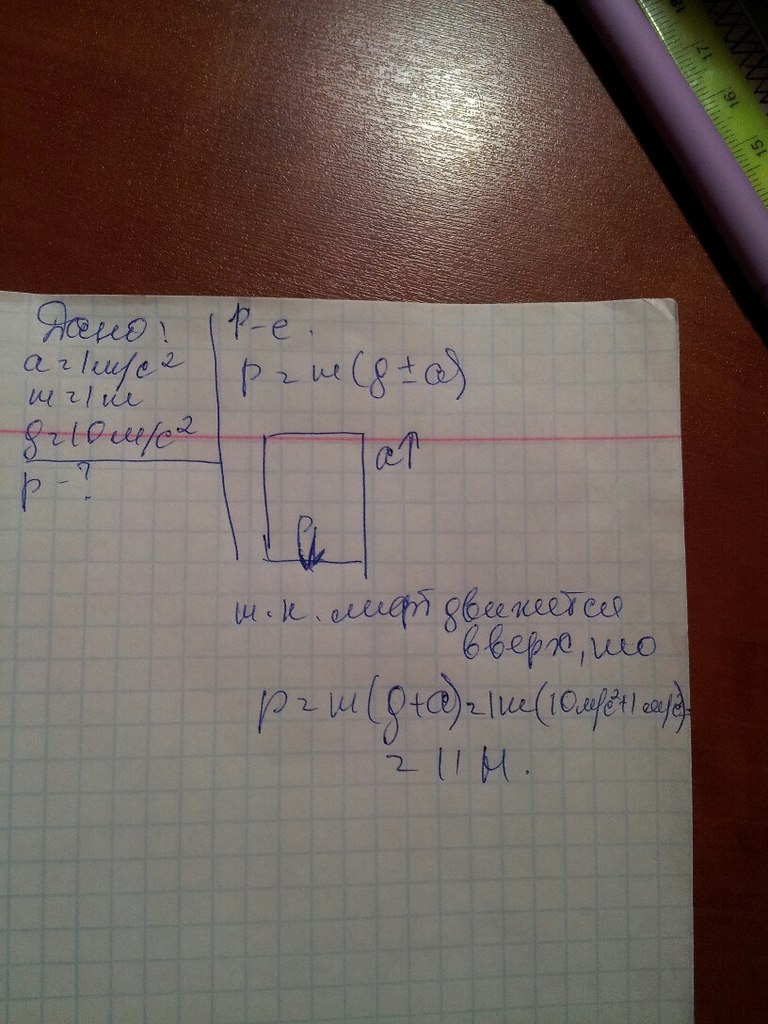 Дано:
a=1м/с²
m=1т
g=10м/с²
p-?
Р-е.
p=m(g±a)
a↑
P
т.к. лифт движется
вверх, то
p=m(g+a)=1т(10м/с²+1м/с²)=
=11Н.
15
16
17
18